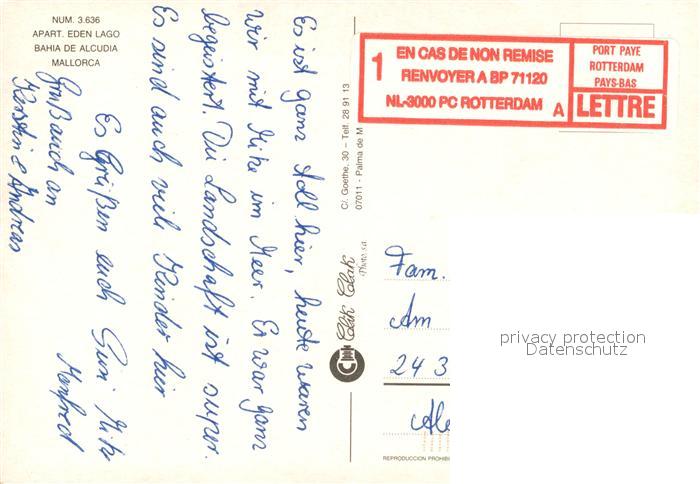 NUM. 3.636
APART. EDEN LAGO
BAHIA DE ALCUDIA
MALLORCA
Es ist ganz toll hier, heute waren
wir mit Mike im Meer. Er war ganz
begeistert. Die Landschaft ist super.
Es sind auch viele Kinder hier
Es Grüßen euch Gusi Mike
Manfred
Gruß auch an
Kerstin & Andreas
C/. Goethe, 30 – Telf. 28 91 13
07011 - Palma de M
Clik Clak
Photo, s.a.
1
EN CAS DE NON REMISE
RENVOYER A BP 71120
NL-3000 PC ROTTERDAM
A
PORT PAYE
ROTTERDAM
PAYS-BAS
LETTRE
Fam.
Am
24 3
Ale
REPRODUCCION PROHIBI
privacy protection
Datenschutz